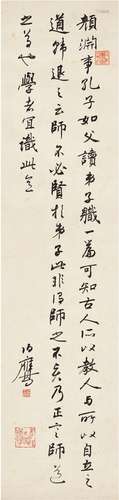 顏淵事孔子如父讀弟子職一篇可知古人所以教人与所以自立之
道韓退之云師不必賢於弟子此非得師之不矣乃正言師道
之尊也學者宜識此意